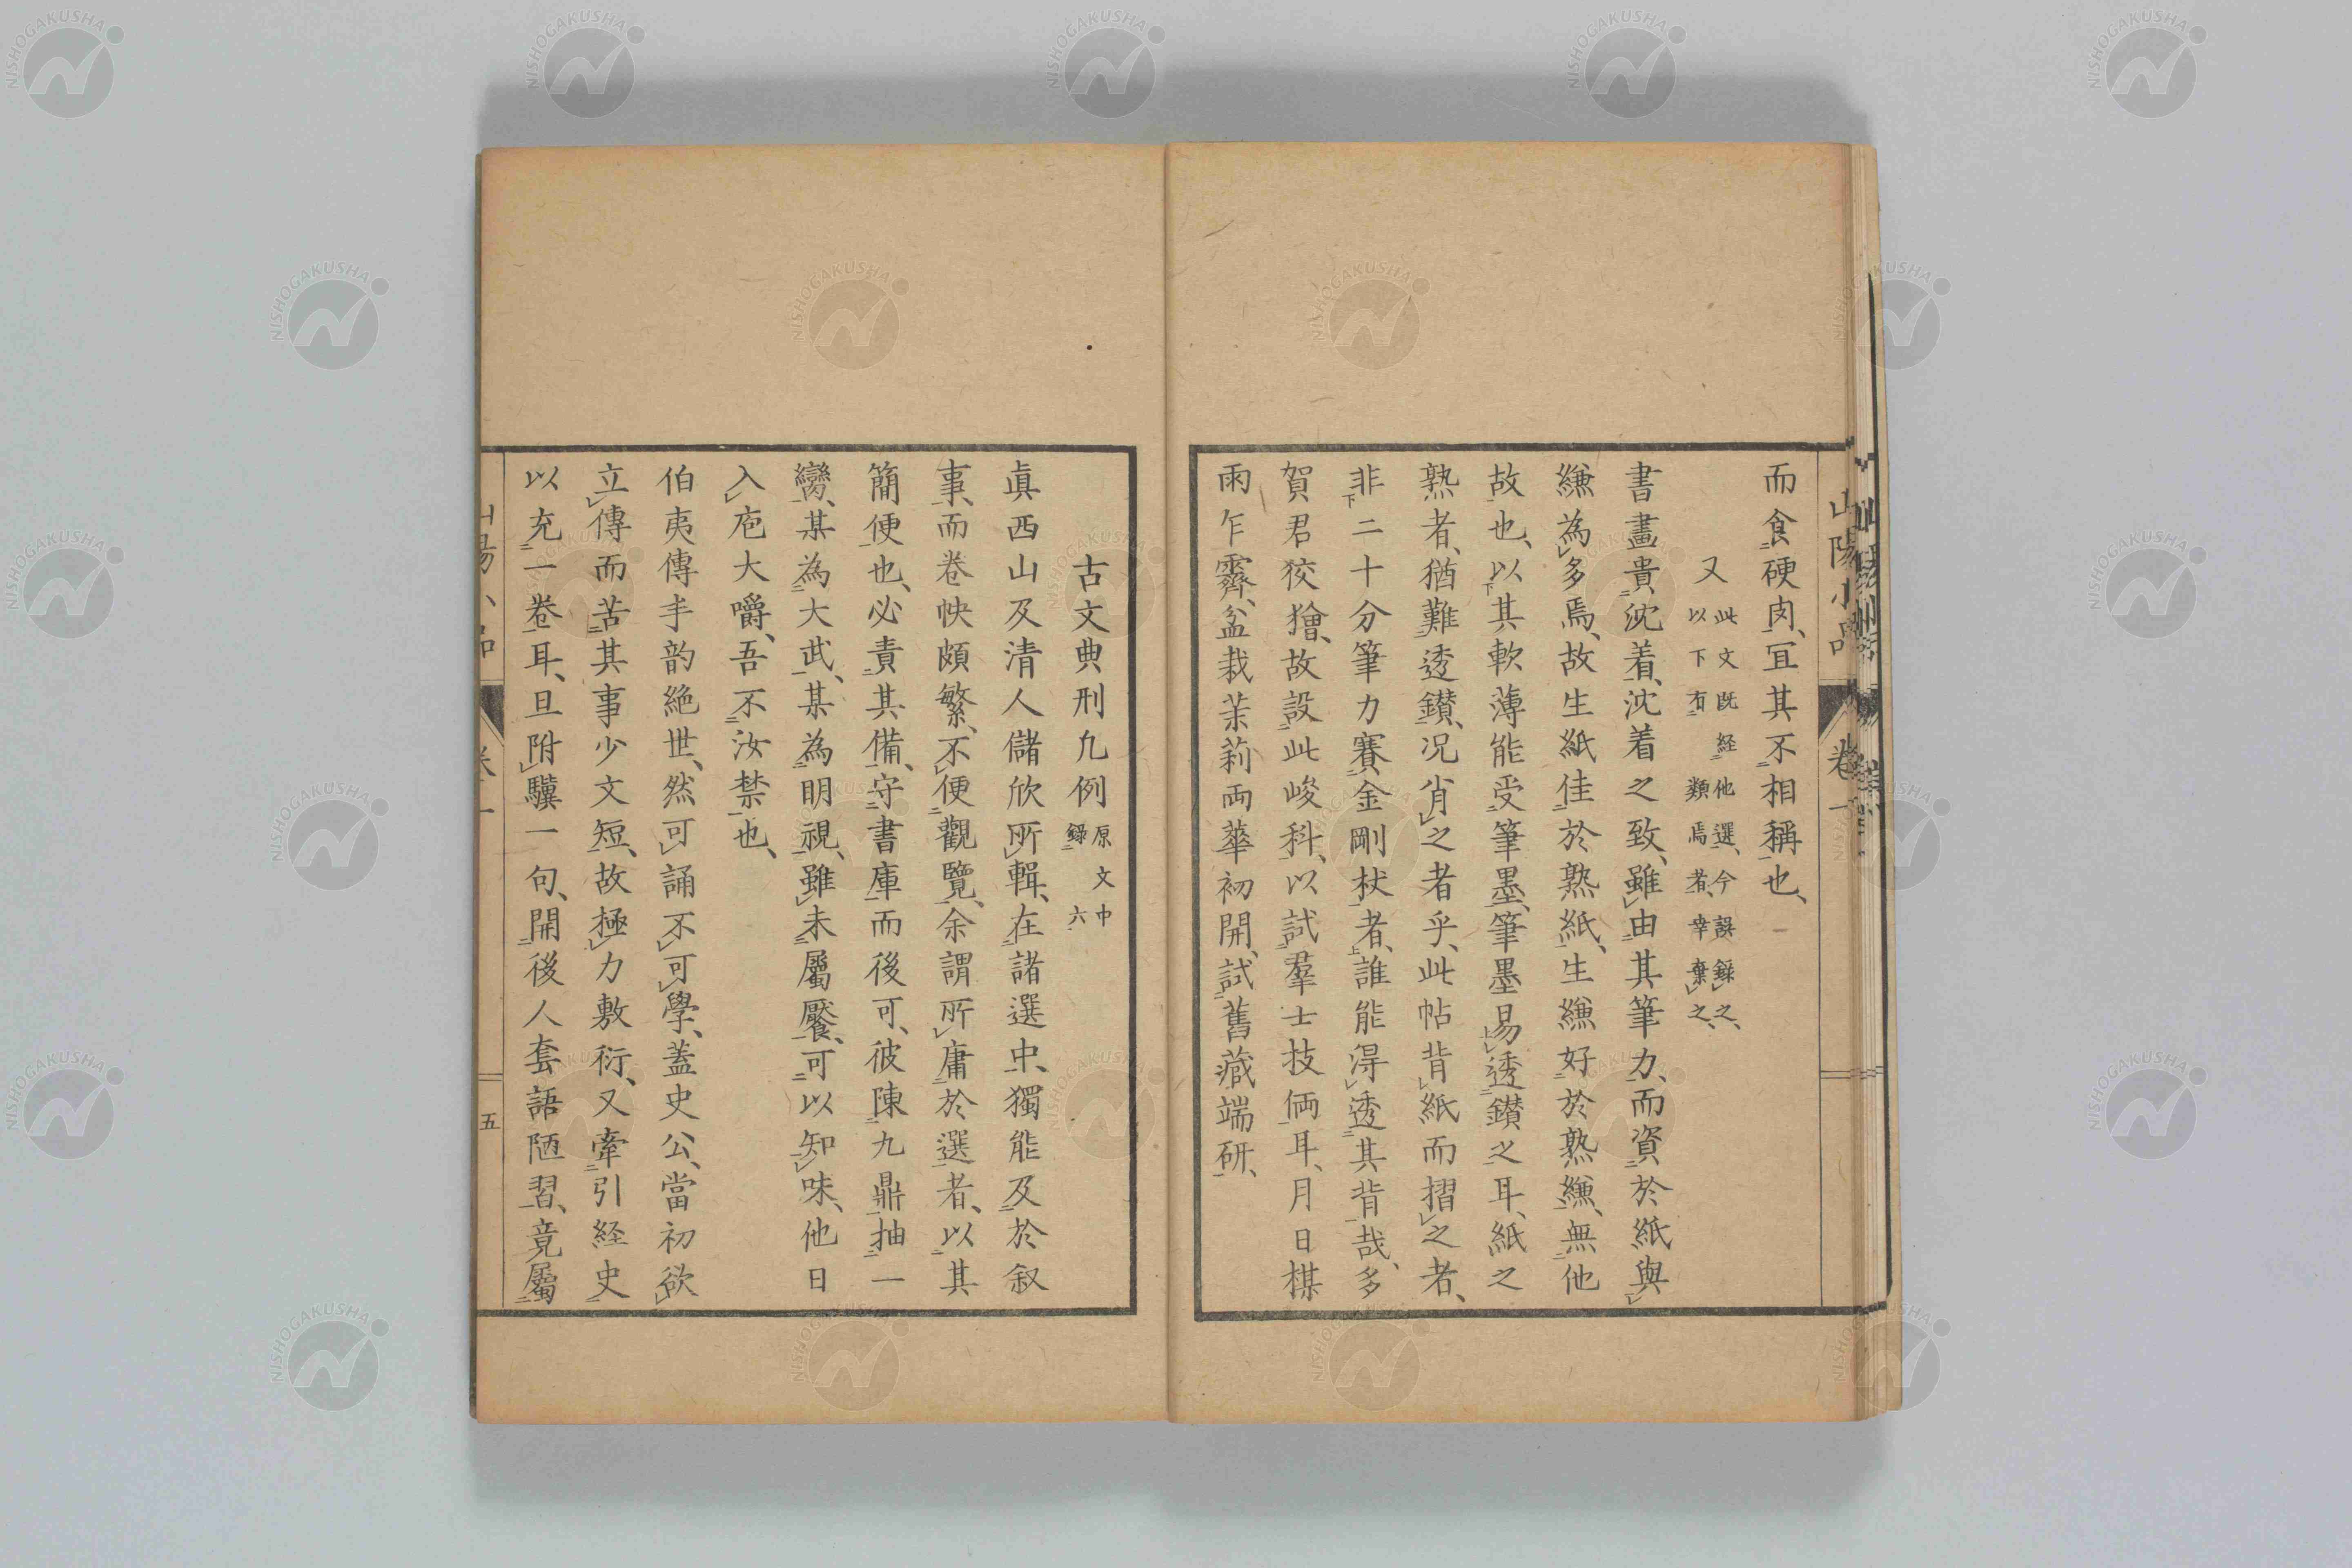 而食硬肉、冝其不相稱也、
又 此文既経他選、今誤錄之、
以下有類焉者、幸棄之、
書畫貴沈着、沈着之致、雖由其筆力、而資於紙與
縑為多焉、故生紙佳於熟紙、生縑好於熟縑、無他
故也、以其軟薄能受筆墨、筆墨易透鑚之耳、紙之
熟者、猶難透鑚、况肖之者乎、此帖背紙而摺之者、
非二十分筆力賽金剛杖者、誰能淂透其背哉、多
賀君狡獪、故設此峻科、以試羣士技倆耳、月日棋
雨乍霽、盆栽茉莉両蕐初開、試舊藏端研、
山陽小品 卷一
古文典刑九例 原文中
錄六
眞西山及清人儲欣所輯、在諸選中、獨能及於叙
事、而卷帙頗繁、不便觀覽、余謂所庸於選者、以其
簡便也、必責其備、守書庫而後可、彼陳九鼎抽一
臠、某為大武、某為明視、雖未屬饜、可以知味、他日
入庖大嚼、吾不汝禁也、
伯夷傳丰韵絶世、然可誦不可學、蓋史公、當初欲
立傳而苦其事少文短、故極力敷衍、又牽引経史
以充一卷耳、旦附驥一句、開後人套語陋習、竟屬
五